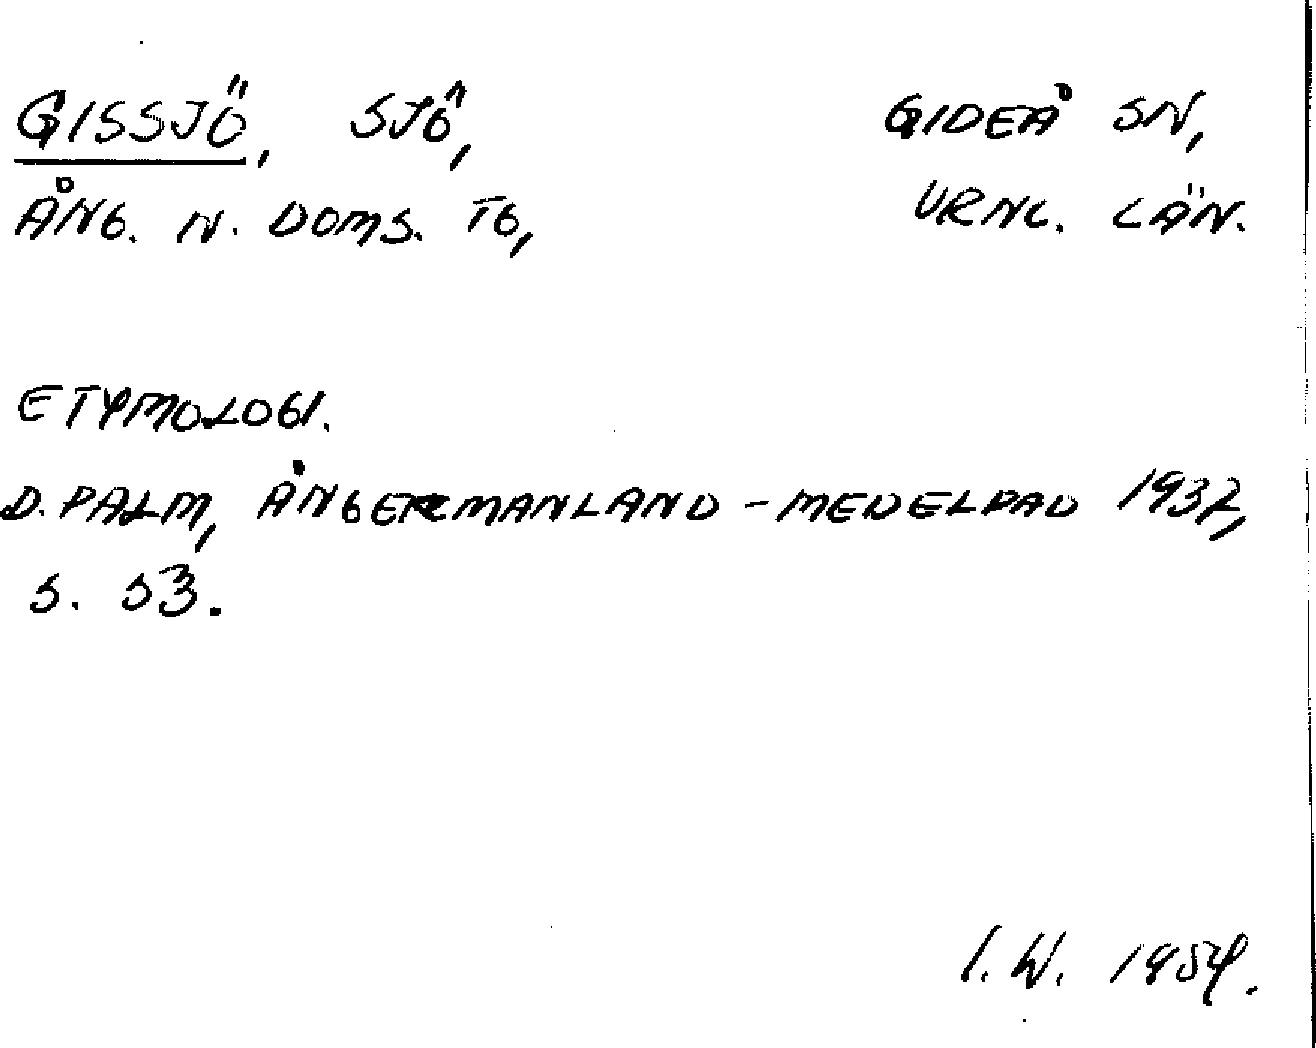 GISSJÖ, SJÖ, GIDEÅ SN,
ÅNG. N. DOMS. TG, VRNL. LÄN.
ETYMOLOGI.
D. PALM, ÅNGERMANLAND - MEDELPAD 1937,
S. 53.
I. W. 1954.